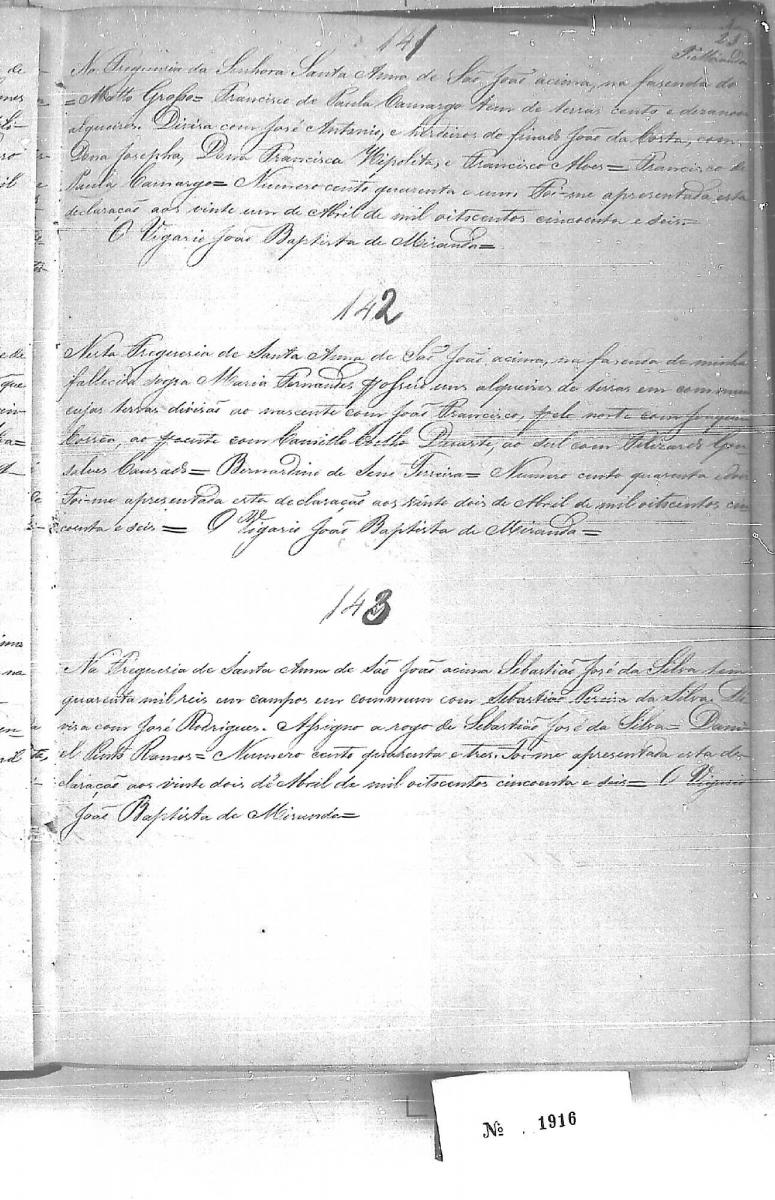 23
141
Na Freguesia da Senhora Santa Anna de São João acima, na fazenda do
=Matto Grosso= Francisco de Paula Camargo tem de terras cento e
alqueires. Divisa com José Antonio, e herdeiros do finado João da Costa, com
Dona Josepha, Dona Francisca Hipolita, e Francisco Alves= Francisco de
Paula Camargo= Numero cento quarenta e um. Foi-me apresentada esta
declaração aos vinte um de Abril de mil oitocentos cincoenta e seis=
O Vigario João Baptista de Miranda=
142
Nesta Freguesia de Santa Anna de São João acima, na fazenda de minha
fallecida sogra Maria Fernandes, possuo uns alqueires de terras em commum
cujas terras divisão ao nascente com João Francisco, pelo norte com Joaquim
Corrêa, ao poente com Camillo Coelho Duarte, ao sul com
= Bernardino de Sene Ferreira= Numero cento quarenta e dois
Foi-me apresentada esta declaração aos vinte dois de Abril de mil oitocentos cin
coenta e seis= O Vigario João Baptista de Miranda=
143
Na Freguesia de Santa Anna de São João acima Sebastião José da Silva tem
quarenta mil reis em campos em commum com Sebastião Pereira da Silva. Di
visa com José Rodrigues. Assigno a rogo de Sebastião José da Silva= Dani
el Pinto Ramos= Numero cento quarenta e tres. Foi-me apresentada esta de
claração aos vinte dois de Abril de mil oitocentos cincoenta e seis= O Vigario
João Baptista de Miranda=
Nº 1916